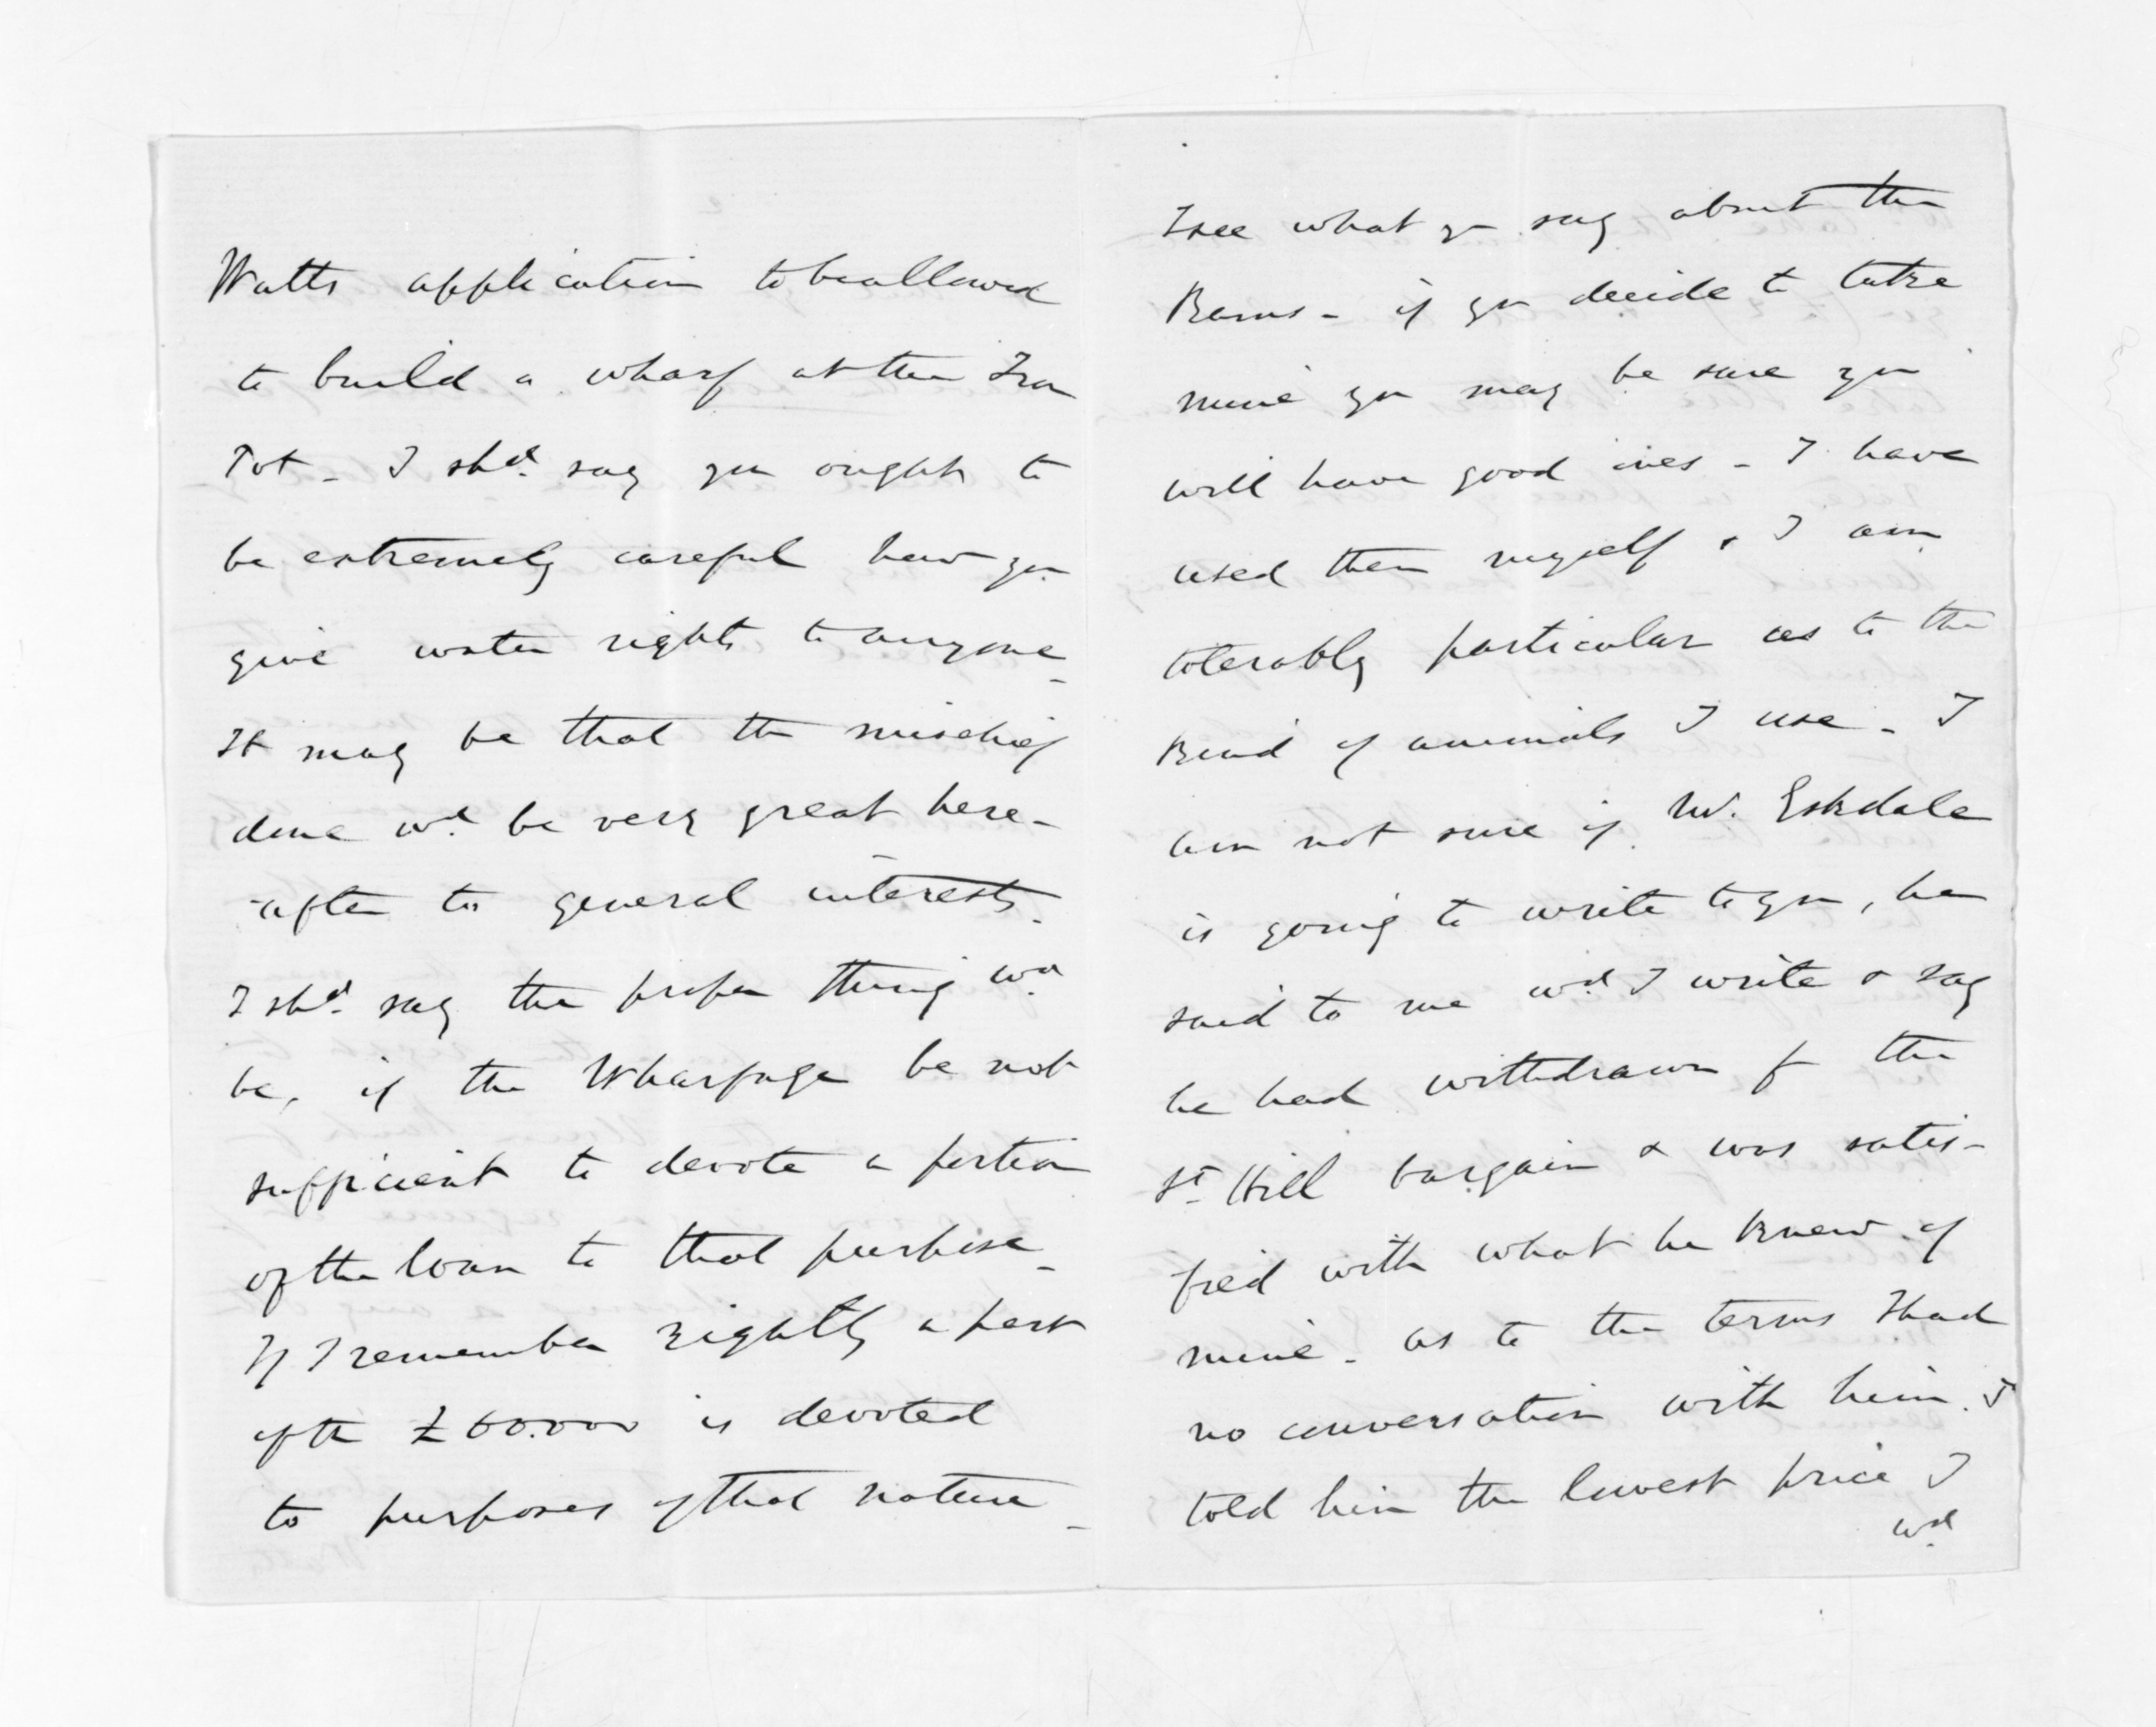 Watts application to be allowed
to build a wharf at the Iron
Pot - I shd. say you ought to
be extremely careful how you
give water rights to anyone -
It may be that the mischief
done wd. be very great here-
-after to general interests -
I shd. say the proper thing wd.
be, if the Wharfage be not
sufficient to devote a portion
of the loan to that purpose -
If I remember rightly a part
of the £60.000 is devoted
to purposes of that nature -
I see what you say about the
Rams - if you decide to take
mine you may be sure you
will have good ones - I have
used them myself & I am
tolerably particular as to the
kind of animals I use - I
am not sure if Mr. Eskdale
is going to write to you, he
said to me wd. I write & say
he had withdrawn f the
St. Hill bargain & was satis-
fied with what he knew of
mine - as to the terms I had
no conversation with him. I
told him the lowest price I
wd.